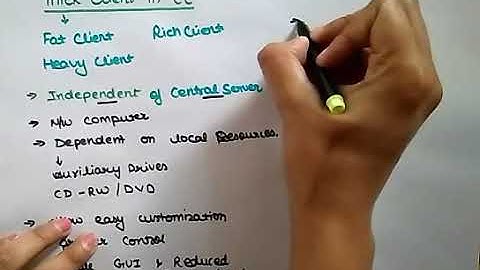 Thick Client in CC
Fat Client Rich Client
Heavy Client
→ Independent of Central Server
→ N/w computer
→ Dependent on local Resources.
Auxiliary Drives
CD-RW / DVD
easy customization
Control
GUI & Reduced